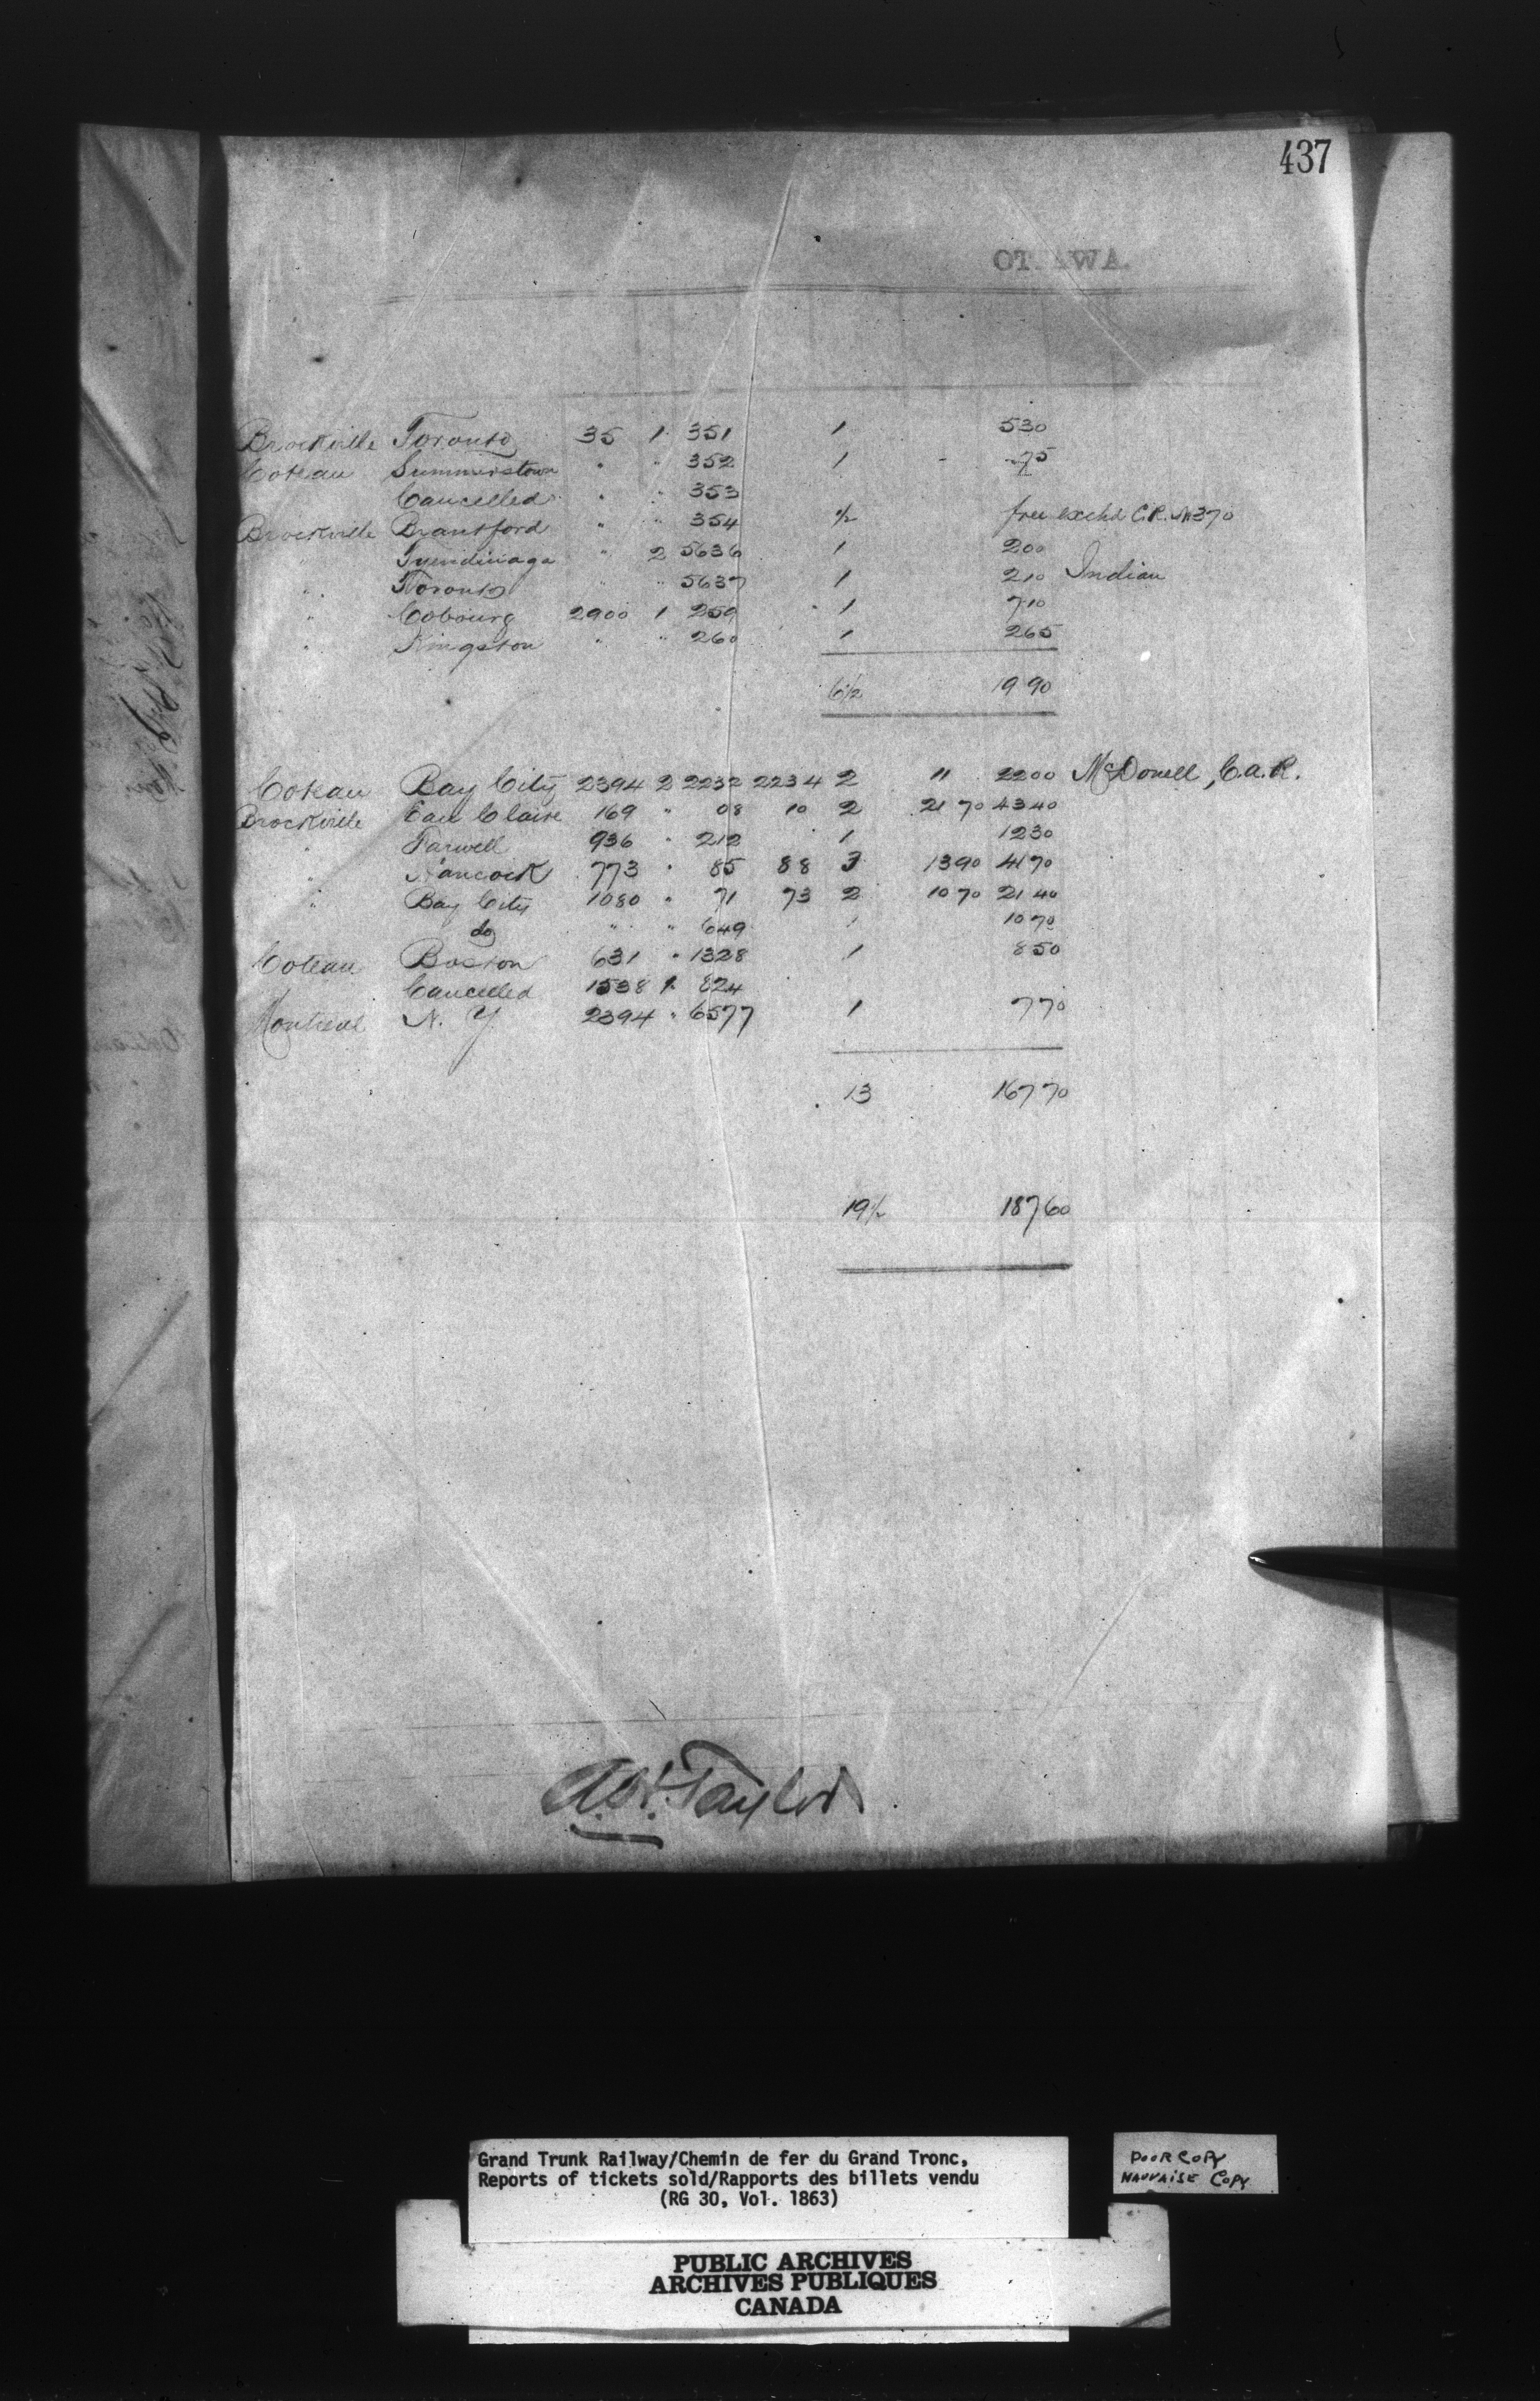 437
OTTAWA.
Brockville Toronto 35 1 351 1 530
Coteau Summerstown " " 352 1 75
Cancelled " " 353
Brockville Brantford " " 354 1/2 free exchd C.R. 370
" Tyendinaga " 2 5636 1 200
" Toronto " " 5637 1 210 Indian
" Cobourg 2900 1 259 1 710
" Kingston " " 260 1 265
6 1/2 19 90
Coteau Bay City 2394 2 2232 2234 2 11 2200 McDonell, C.A.R.
Brockville Eau Claire 169 " 08 10 2 21 70 43 40
" Farwell 936 " 212 1 12 30
" Hancock 773 " 85 88 3 13 90 41 70
" Bay City 1080 " 71 73 2 10 70 21 40
do " " 649 1 10 70
Coteau Boston 631 " 1328 1 8 50
Cancelled 1538 1 824
Montreal N. Y 2394 " 6577 1 7 70
13 167 70
19 1/2 187 60
A.H. Taylor
Grand Trunk Railway/Chemin de fer du Grand Tronc,
Reports of tickets sold/Rapports des billets vendu
(RG 30, Vol. 1863)
POOR COPY
MAUVAISE COPY
PUBLIC ARCHIVES
ARCHIVES PUBLIQUES
CANADA